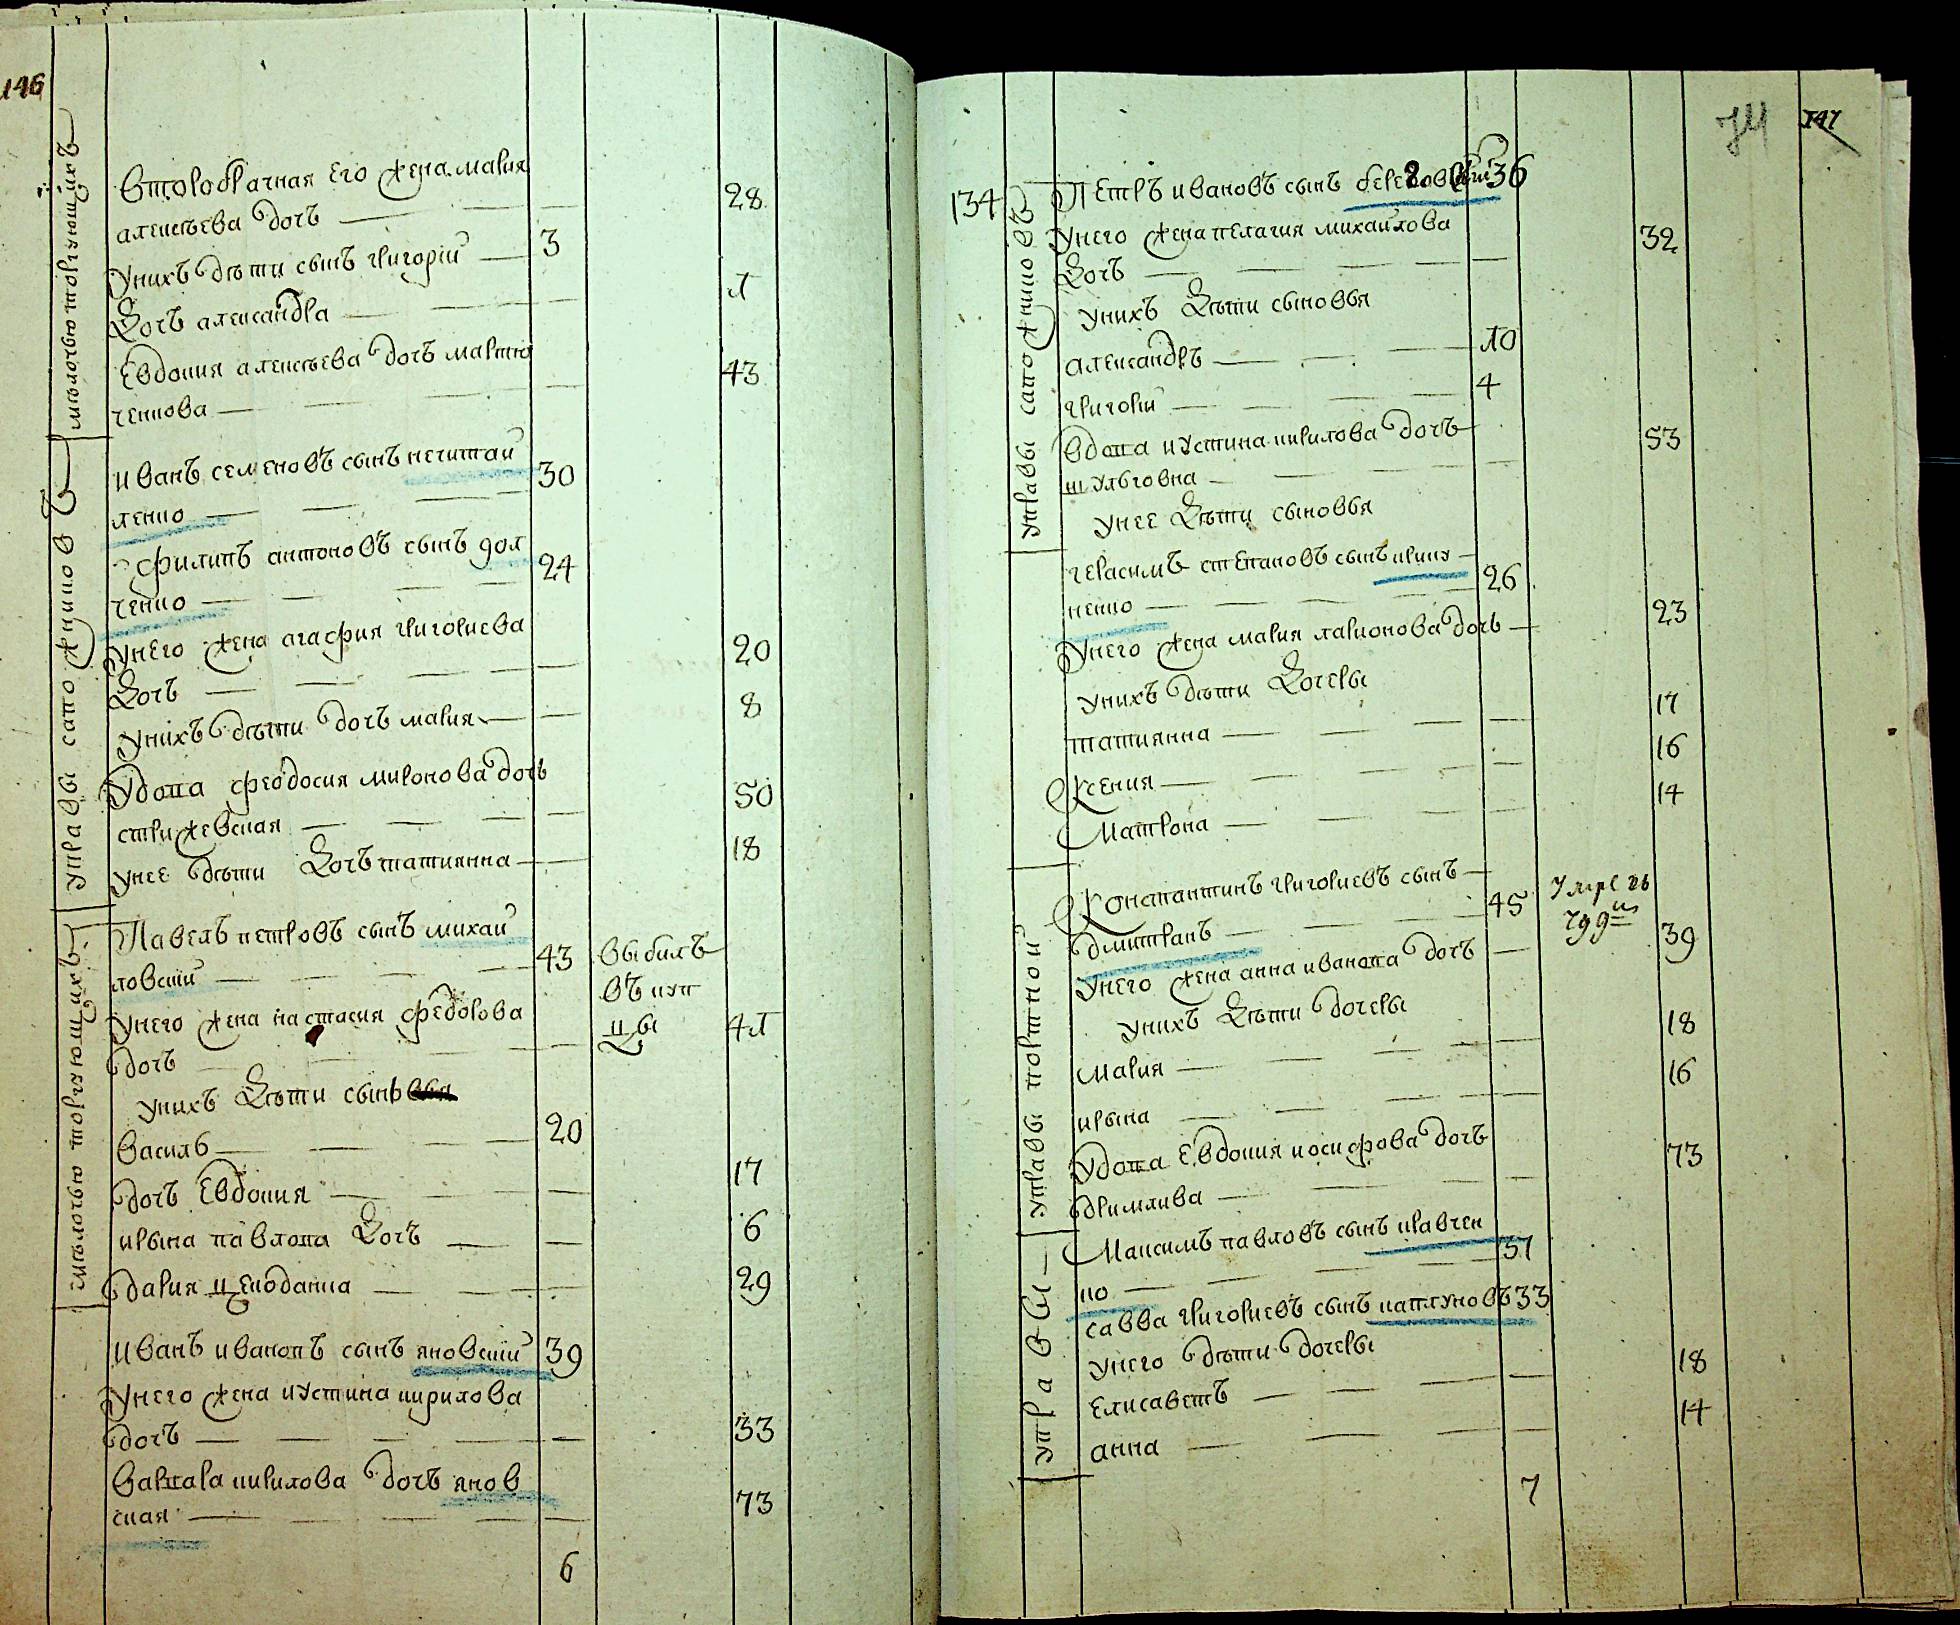 146
мѣлочью торгующихъ
второбрачная его жена мария
алексѣева дочь 28
у нихъ дѣти сынъ григорій 3
дочь александра 1
евдокия алексѣева дочь марты
ченкова 43
управы сапожниковъ
иванъ семеновъ сынъ нечитай
ленко 30
филипъ антоновъ сынъ дол
ченко 24
у него жена агафия григориева
дочь 20
у нихъ дѣти дочь мария 8
удова феодосия миронова дочь
стрижевская 50
у нее дѣти дочь татиянна 18
мѣлочью торгующихъ
павелъ петровъ сынъ михай
ловский 43 выбилъ
въ куп
цы
у него жена настасия федорова
дочь 41
у нихъ дѣти сынъ
василь 20
дочь евдокия 17
ирына павлова дочь 6
дария 29
иванъ ивановъ сынъ яновский 39
у него жена иустина кирилова
дочь 33
варвара кирилова дочь янов
ская 73
6
74 147
134
управы сапожниковъ
петръ ивановъ сынъ 36
у него жена пелагия михайлова
дочь 32
у нихъ дѣти сыновья
александръ 10
григорій 4
вдова иустина кирилова дочь
шульговна 53
у нее дѣти сыновья
герасимъ степановъ сынъ крику
ненко 26
у него жена мария ларионова дочь 23
у нихъ дѣти дочеры
татиянна 17
ксения 16
матрона 14
управы портной
константинъ григориевъ сынъ
дмитракъ 45 умре въ
799м
у него жена анна иванова дочь 39
у нихъ дѣти дочеры
мария 18
ирына 16
удова евдокия иосифова дочь
дримлива 73
управы
максимъ павловъ сынъ кравчен
ко 37
савва григориевъ сынъ каплуновъ 33
у него дѣти дочеры
елисаветъ 18
анна 14
7